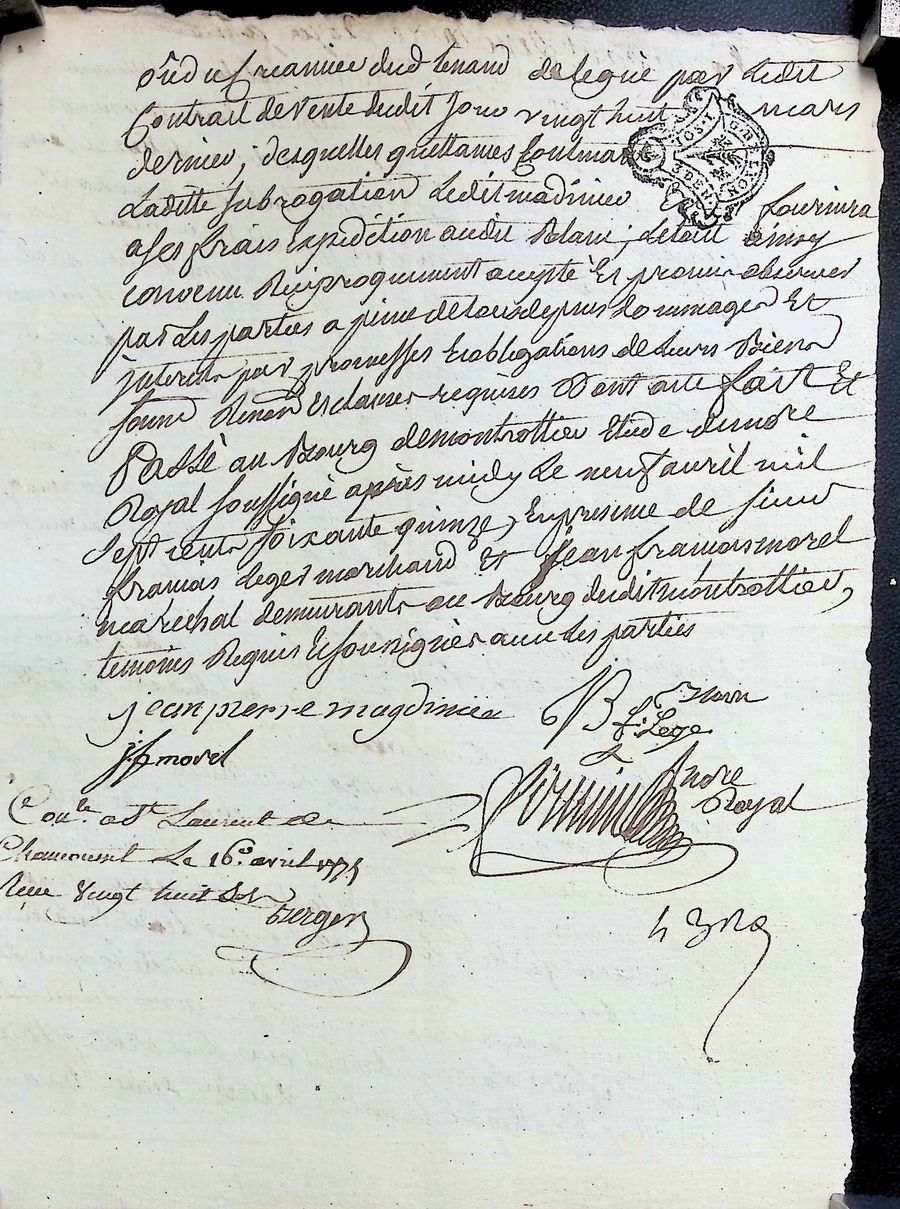 créanciers dud Tenand delegué par ledit
Contrait de vente dudit jour vingt huit mars
dernier, desquelles quittances Contenant
Laditte subrogation Ledit madinier fournira
a ses frais Expédition audit Blanc; detout ainsy
convenu Réciproquement accepté Et promis observer
par Les parties a peine de tous depens Dommages Et
interets par promesses Et obligations de Leurs Biens
soum Renon Et clauses requises Dont acte fait Et
Passé au Bourg de montrottier Etude du nore
Royal soussigné après midy Le neuf avril mil
sept cents soixante quinze, En presence de sieur
francois Leger marchand Et Jean francois morel
marechal demeurants au Bourg dudit montrottier,
temoins Requis Et soussignés avec les parties
jean pierre magdinier
F. Lege
jf morel
nore
Royal
Conlé a St Laurent de
Chamousset Le 16e avril 1775
Reçu vingt huit sols
Berger
GEN DE LYON